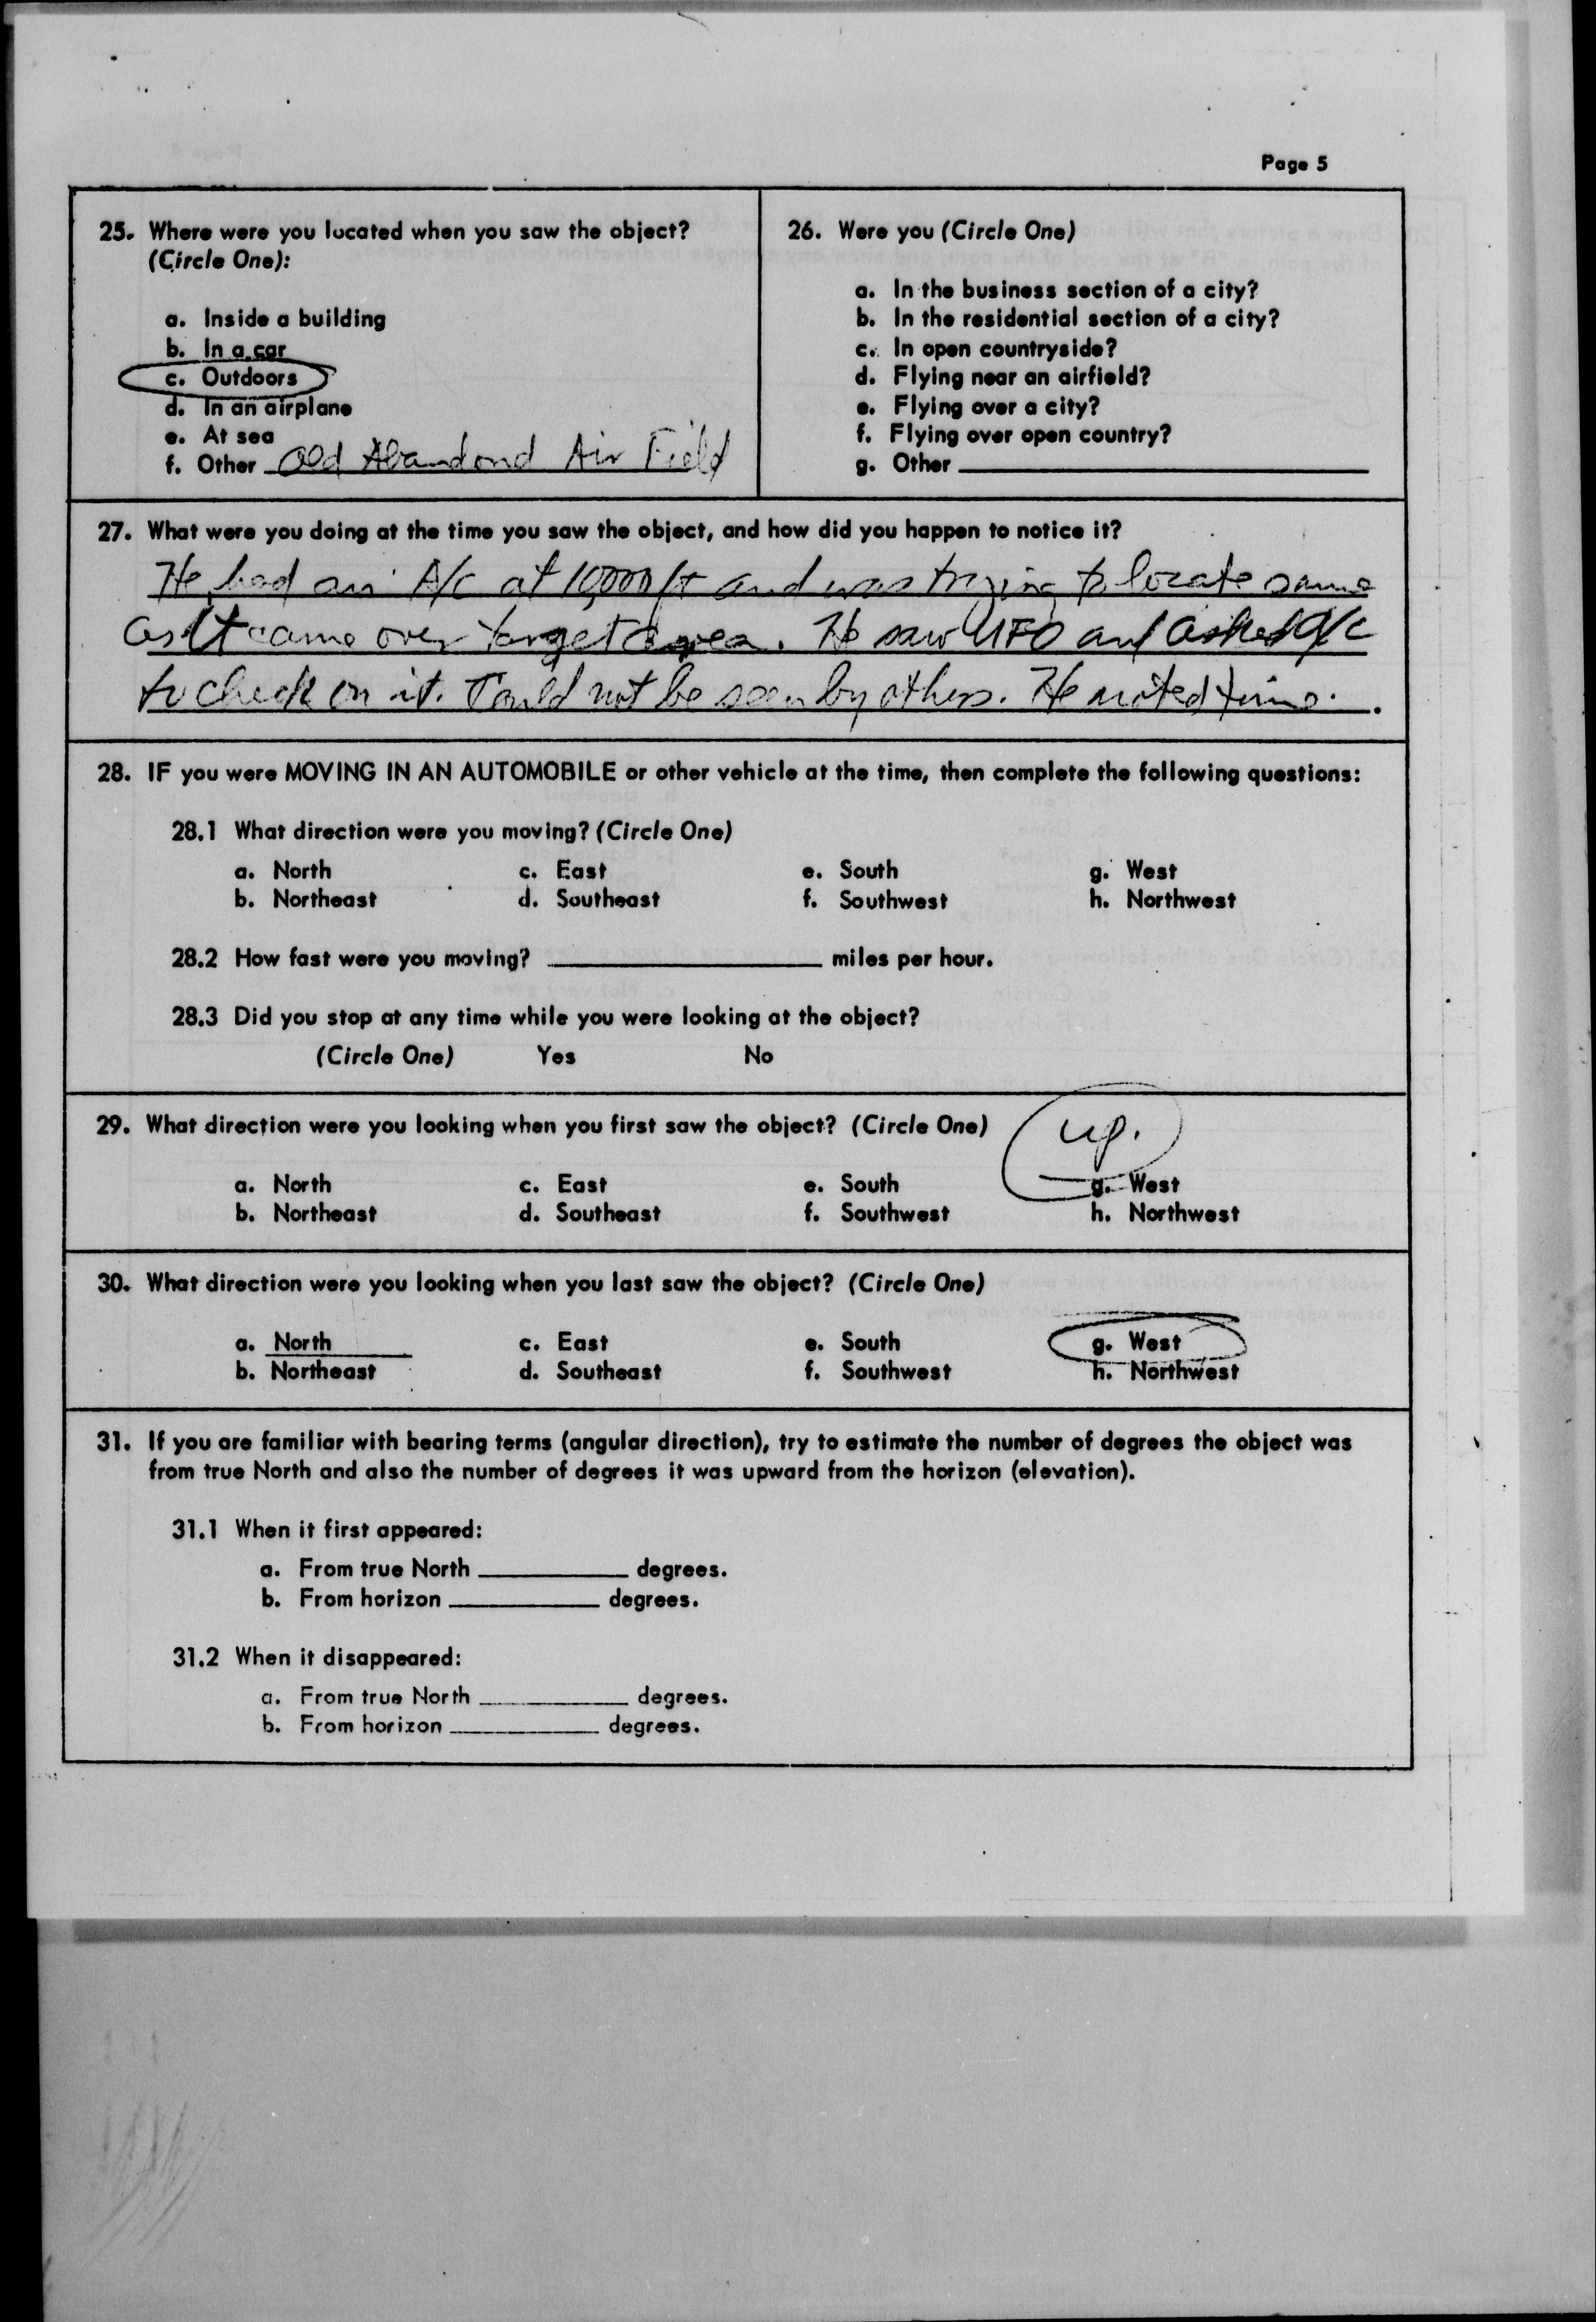 Page 5
25. Where were you located when you saw the object?
(Circle One):
a. Inside a building
b. In a car
c. Outdoors
d. In an airplane
e. At sea
f. Other Old Abandond Air Field
26. Were you (Circle One)
a. In the business section of a city?
b. In the residential section of a city?
c. In open countryside?
d. Flying near an airfield?
e. Flying over a city?
f. Flying over open country?
g. Other
27. What were you doing at the time you saw the object, and how did you happen to notice it?
He had an A/C at 10,000 ft and was trying to locate same
as it came over target area. He saw UFO and asked A/C
to check on it. Could not be seen by others. He noted time.
28. IF you were MOVING IN AN AUTOMOBILE or other vehicle at the time, then complete the following questions:
28.1 What direction were you moving? (Circle One)
a. North c. East e. South g. West
b. Northeast d. Southeast f. Southwest h. Northwest
28.2 How fast were you moving? miles per hour.
28.3 Did you stop at any time while you were looking at the object?
(Circle One) Yes No
29. What direction were you looking when you first saw the object? (Circle One) up.
a. North c. East e. South g. West
b. Northeast d. Southeast f. Southwest h. Northwest
30. What direction were you looking when you last saw the object? (Circle One)
a. North c. East e. South g. West
b. Northeast d. Southeast f. Southwest h. Northwest
31. If you are familiar with bearing terms (angular direction), try to estimate the number of degrees the object was
from true North and also the number of degrees it was upward from the horizon (elevation).
31.1 When it first appeared:
a. From true North degrees.
b. From horizon degrees.
31.2 When it disappeared:
a. From true North degrees.
b. From horizon degrees.